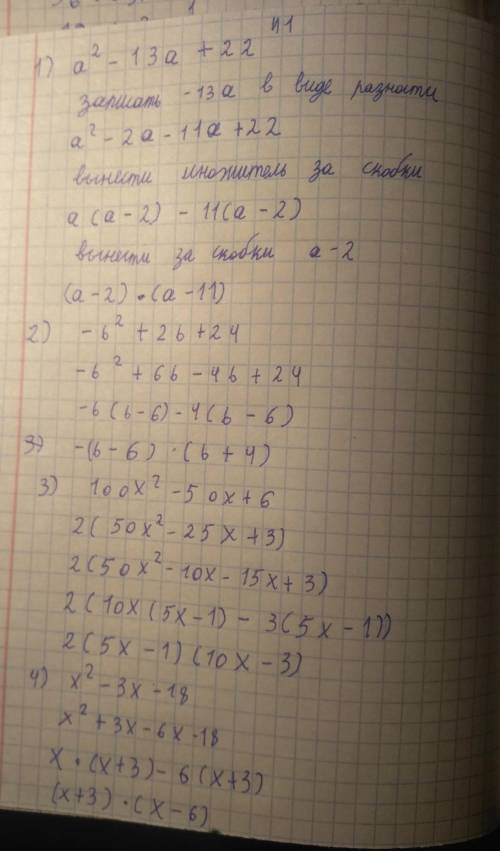 п1
1) a² - 13a + 22
записать -13a в виде разности
a² - 2a - 11a + 22
вынести множитель за скобки
a (a - 2) - 11(a - 2)
вынести за скобки a - 2
(a - 2) · (a - 11)
2) -b² + 2b + 24
-b² + 6b - 4b + 24
-b (b - 6) - 4 (b - 6)
-(b - 6) · (b + 4)
3) 100x² - 50x + 6
2(50x² - 25x + 3)
2(50x² - 10x - 15x + 3)
2(10x (5x - 1) - 3(5x - 1))
2(5x - 1) (10x - 3)
4) x² - 3x - 18
x² + 3x - 6x - 18
x · (x + 3) - 6 (x + 3)
(x + 3) · (x - 6)